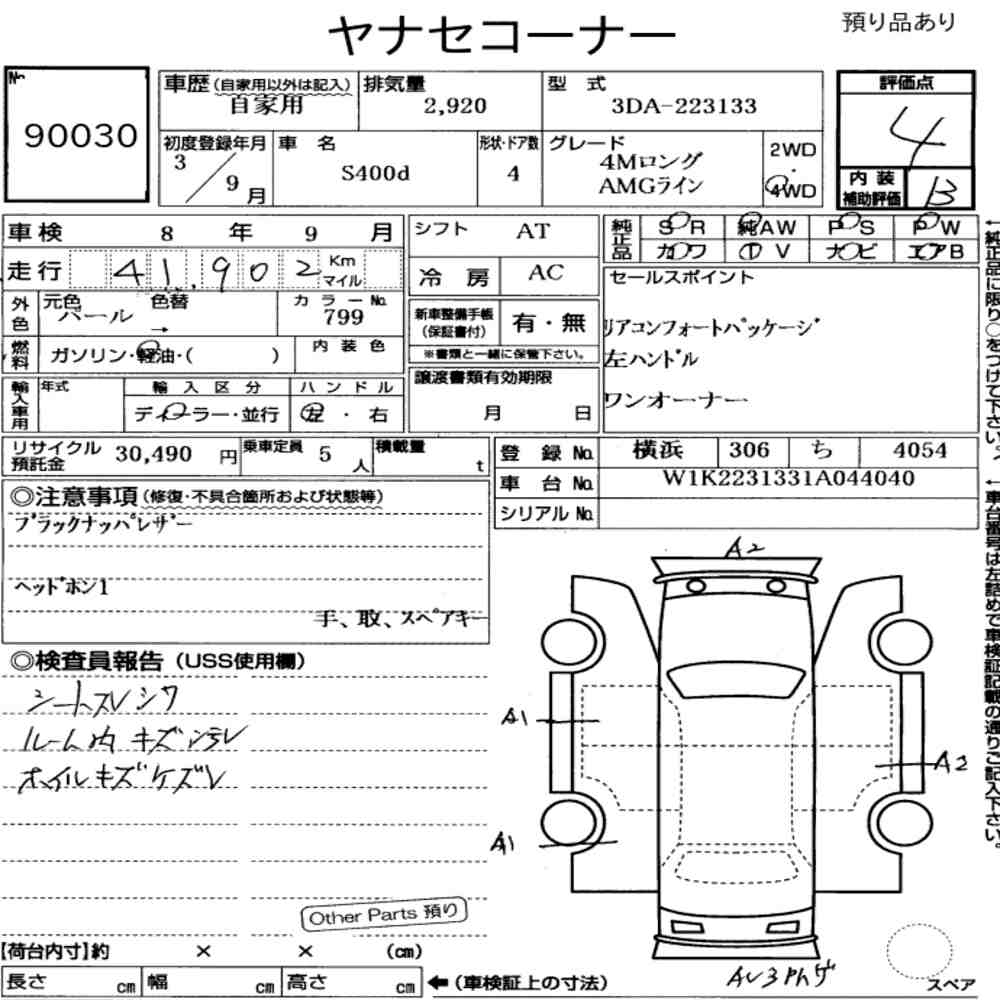 ヤナセコーナー
預り品あり
№
90030
車歴(自家用以外は記入)
自家用
排気量
2,920
型 式
3DA-223133
評価点
4
初度登録年月
3/9月
車 名
S400d
形状・ドア数
4
グレード
4Mロング
AMGライン
2WD
・
4WD
内装
補助評価
B
車検 8 年 9 月
走行 41,902 Km
マイル
外色
元色
パール
色替
→
カラーNo.
799
燃料
ガソリン・軽油・( )
内装色
輸入車用
年式
輸入区分
ディーラー・並行
ハンドル
左・右
シフト
AT
冷房
AC
新車整備手帳
(保証書付)
有・無
※書類と一緒に保管下さい。
譲渡書類有効期限
月 日
純正品
SR 純AW PS PW
カワ TV ナビ エアB
セールスポイント
リアコンフォートパッケージ
左ハンドル
ワンオーナー
←純正品に限り○をつけて下さい。
リサイクル
預託金
30,490 円
乗車定員
5 人
積載量
t
登録No.
横浜 306 ち 4054
車台No.
W1K2231331A044040
シリアルNo.
←車台番号は左詰めで車検証記載の通りご記入下さい。
◎注意事項(修復・不具合箇所および状態等)
ブラックナッパレザー
ヘッドホン1
手、取、スペアキー
◎検査員報告(USS使用欄)
シートスレ シワ
ルーム内 キズ
ホイルキズケズレ
A2
A1
A2
A1
Other Parts 預り
【荷台内寸】約 × × (cm)
長さ cm
幅 cm
高さ cm
←(車検証上の寸法)
スペア